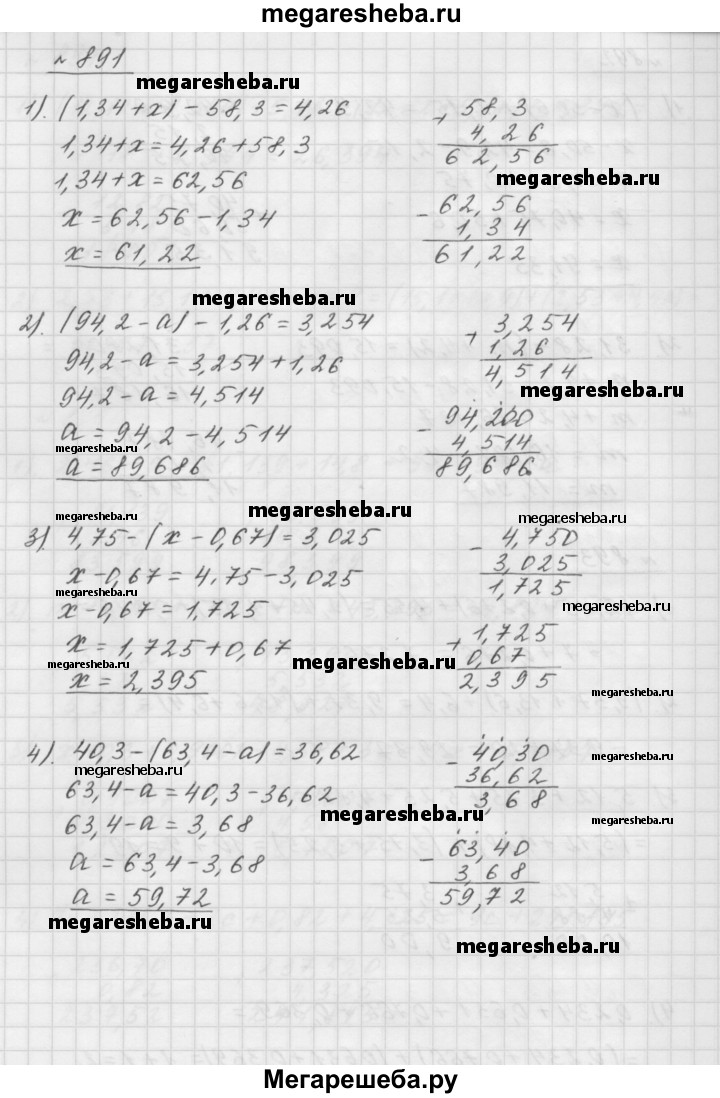 megaresheba.ru
№ 891
megaresheba.ru
1). (1,34+x) - 58,3 = 4,26
1,34+x = 4,26+58,3
1,34+x = 62,56
x = 62,56 - 1,34
x = 61,22
+ 58,3
4,26
62,56
megaresheba.ru
- 62,56
1,34
61,22
megaresheba.ru
2). (94,2 - a) - 1,26 = 3,254
94,2 - a = 3,254 + 1,26
94,2 - a = 4,514
a = 94,2 - 4,514
megaresheba.ru
a = 89,686
+ 3,254
1,26
4,514
megaresheba.ru
- 94,200
4,514
89,686
megaresheba.ru
megaresheba.ru
megaresheba.ru
3) 4,75 - (x - 0,67) = 3,025
x - 0,67 = 4,75 - 3,025
megaresheba.ru
x - 0,67 = 1,725
x = 1,725 + 0,67
megaresheba.ru
x = 2,395
megaresheba.ru
- 4,750
3,025
1,725
megaresheba.ru
+ 1,725
0,67
2,395
megaresheba.ru
4). 40,3 - (63,4 - a) = 36,62
megaresheba.ru
63,4 - a = 40,3 - 36,62
63,4 - a = 3,68
a = 63,4 - 3,68
a = 59,72
megaresheba.ru
- 40,30
36,62
3,68
megaresheba.ru
megaresheba.ru
megaresheba.ru
- 63,40
3,68
59,72
megaresheba.ru
Мегарешеба.ру